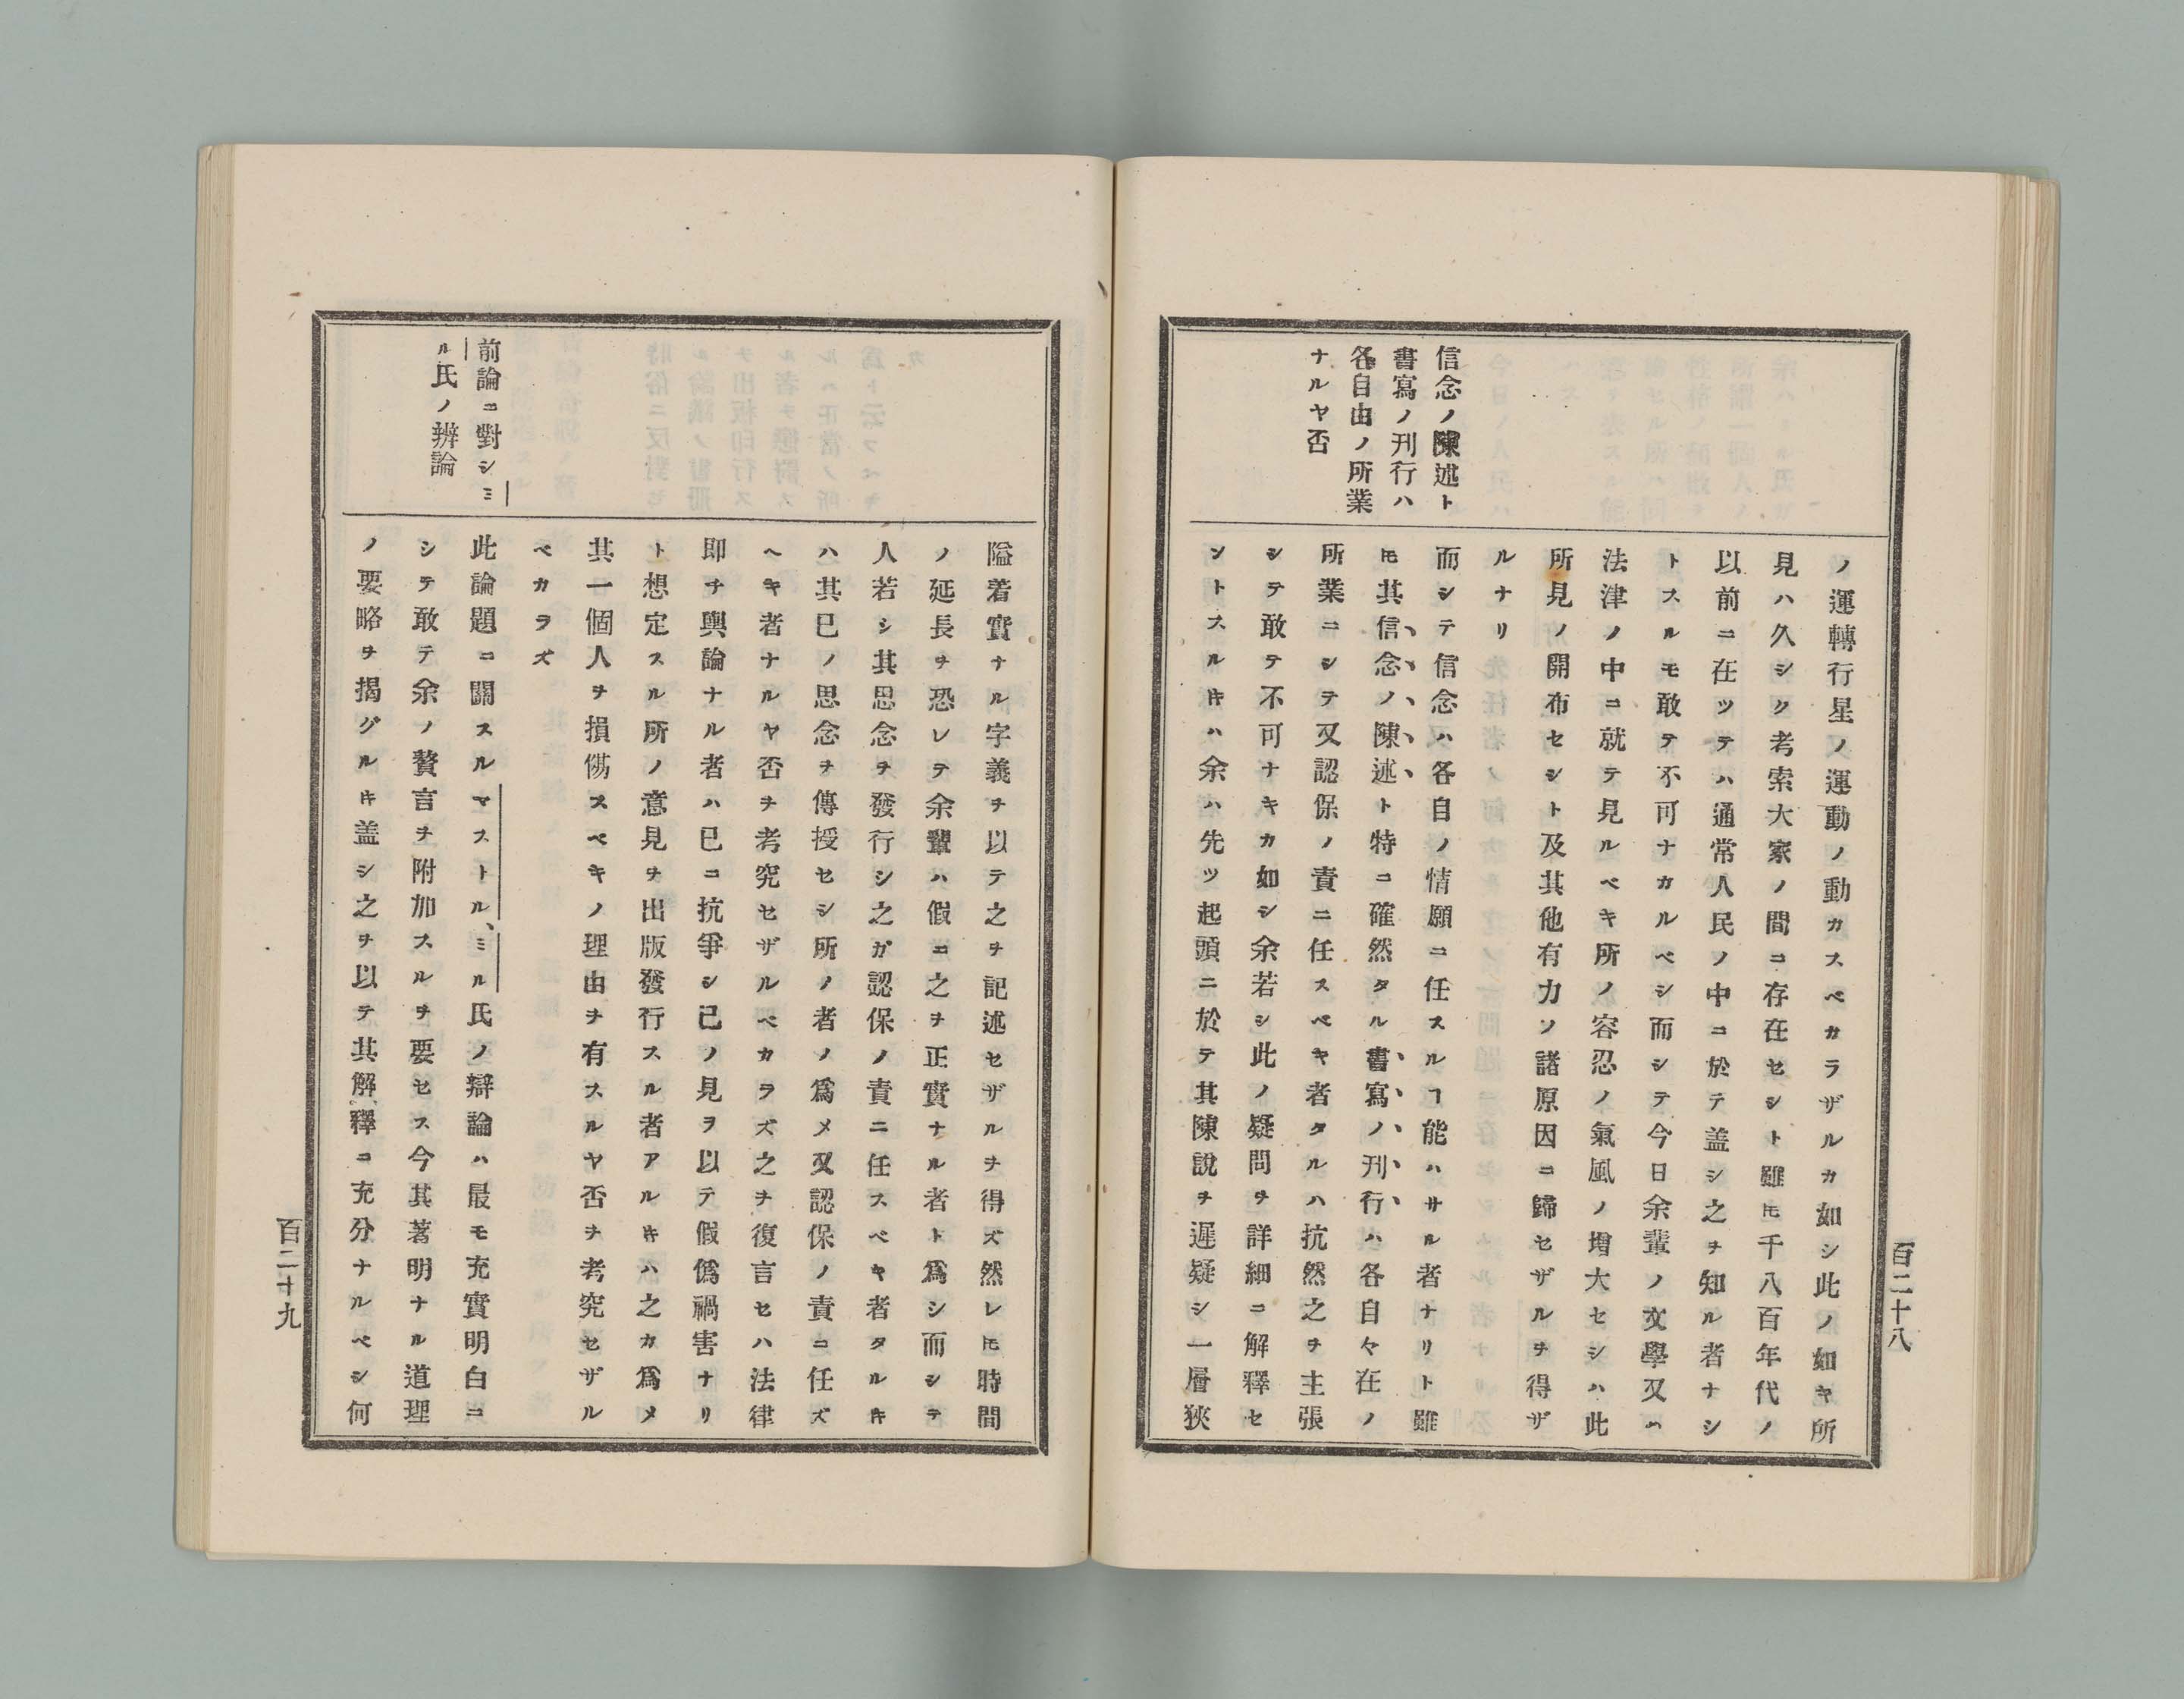 百二十八
信念ノ陳述ト
書寫ノ刊行ハ
各自由ノ所業
ナルヤ否
ノ運轉行星ノ運動ノ動カスベカラザルカ如シ此ノ如キ所
見ハ久シク考索大家ノ間ニ存在セシト雖𪜈千八百年代ノ
以前ニ在ツテハ通常人民ノ中ニ於テ盖シ之ヲ知ル者ナシ
トスルモ敢テ不可ナカルベシ而シテ今日余輩ノ文學又ハ
法津ノ中ニ就テ見ルベキ所ノ容忍ノ氣風ノ増大セシハ此
所見ノ開布セシト及其他有力ノ諸原因ニ歸セザルヲ得ザ
ルナリ
而シテ信念ハ各自ノ情願ニ任スルヿ能ハサル者ナリト雖
𪜈其信念ノ陳述ト特ニ確然タル書寫ノ刊行ハ各自々在ノ
所業ニシテ又認保ノ責ニ任スベキ者タルハ抗然之ヲ主張
シテ敢テ不可ナキカ如シ余若シ此ノ疑問ヲ詳細ニ解釋セ
ントスルキハ余ハ先ツ起頭ニ於テ其陳說ヲ遲疑シ一層狹
百二十九
前論ニ對シミ
ル氏ノ辨論
隘着實ナル字義ヲ以テ之ヲ記述セザルヲ得ズ然レ𪜈時間
ノ延長ヲ恐レテ余輩ハ假ニ之ヲ正實ナル者ト爲シ而シテ
人若シ其思念ヲ發行シ之ガ認保ノ責ニ任スベキ者タルキ
ハ其已ノ思念ヲ傳授セシ所ノ者ノ爲メ又認保ノ責ニ任ズ
ヘキ者ナルヤ否ヲ考究セザルベカラズ之ヲ復言セハ法律
即チ輿論ナル者ハ已ニ抗爭シ已ノ見ヲ以テ假僞禍害ナリ
ト想定スル所ノ意見ヲ出版發行スル者アルキハ之カ爲メ
其一個人ヲ損傷スベキノ理由ヲ有スルヤ否ヲ考究セザル
ベカラズ
此論題ニ關スルマストル、ミル氏ノ辯論ハ最モ充實明白ニ
シテ敢テ余ノ贅言ヲ附加スルヲ要セス今其著明ナル道理
ノ要略ヲ揭グルキ盖シ之ヲ以テ其解釋ニ充分ナルベシ何